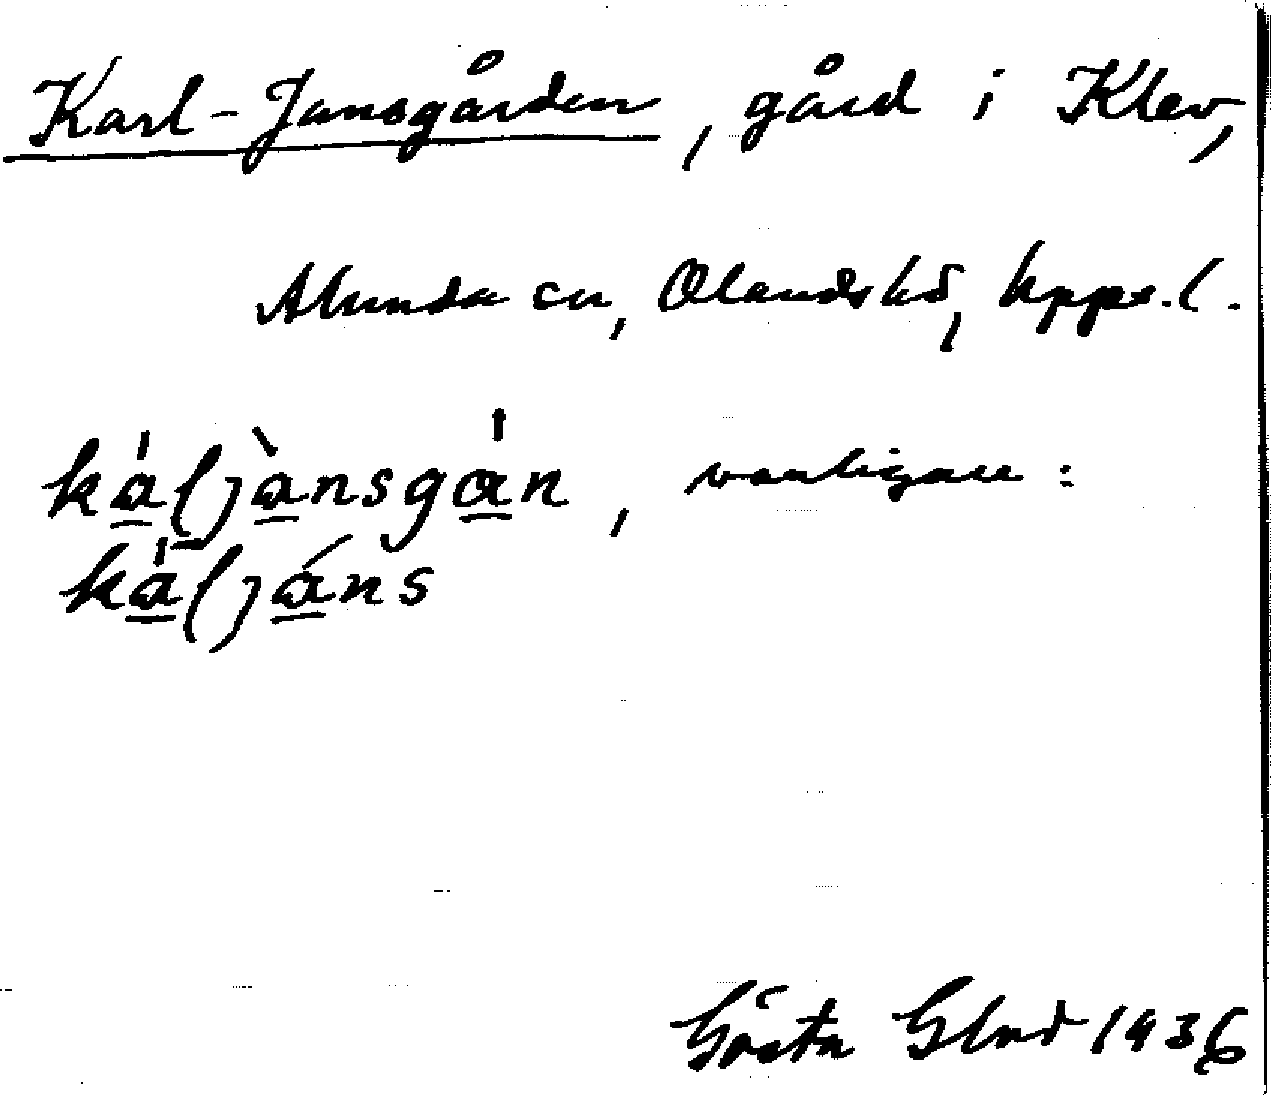 Karl-Jansgården, gård i Klev,
Alunda sn, Olands hd, Upps. l.
kaljansgan, vanligare:
kaljans
Gösta Glad 1936